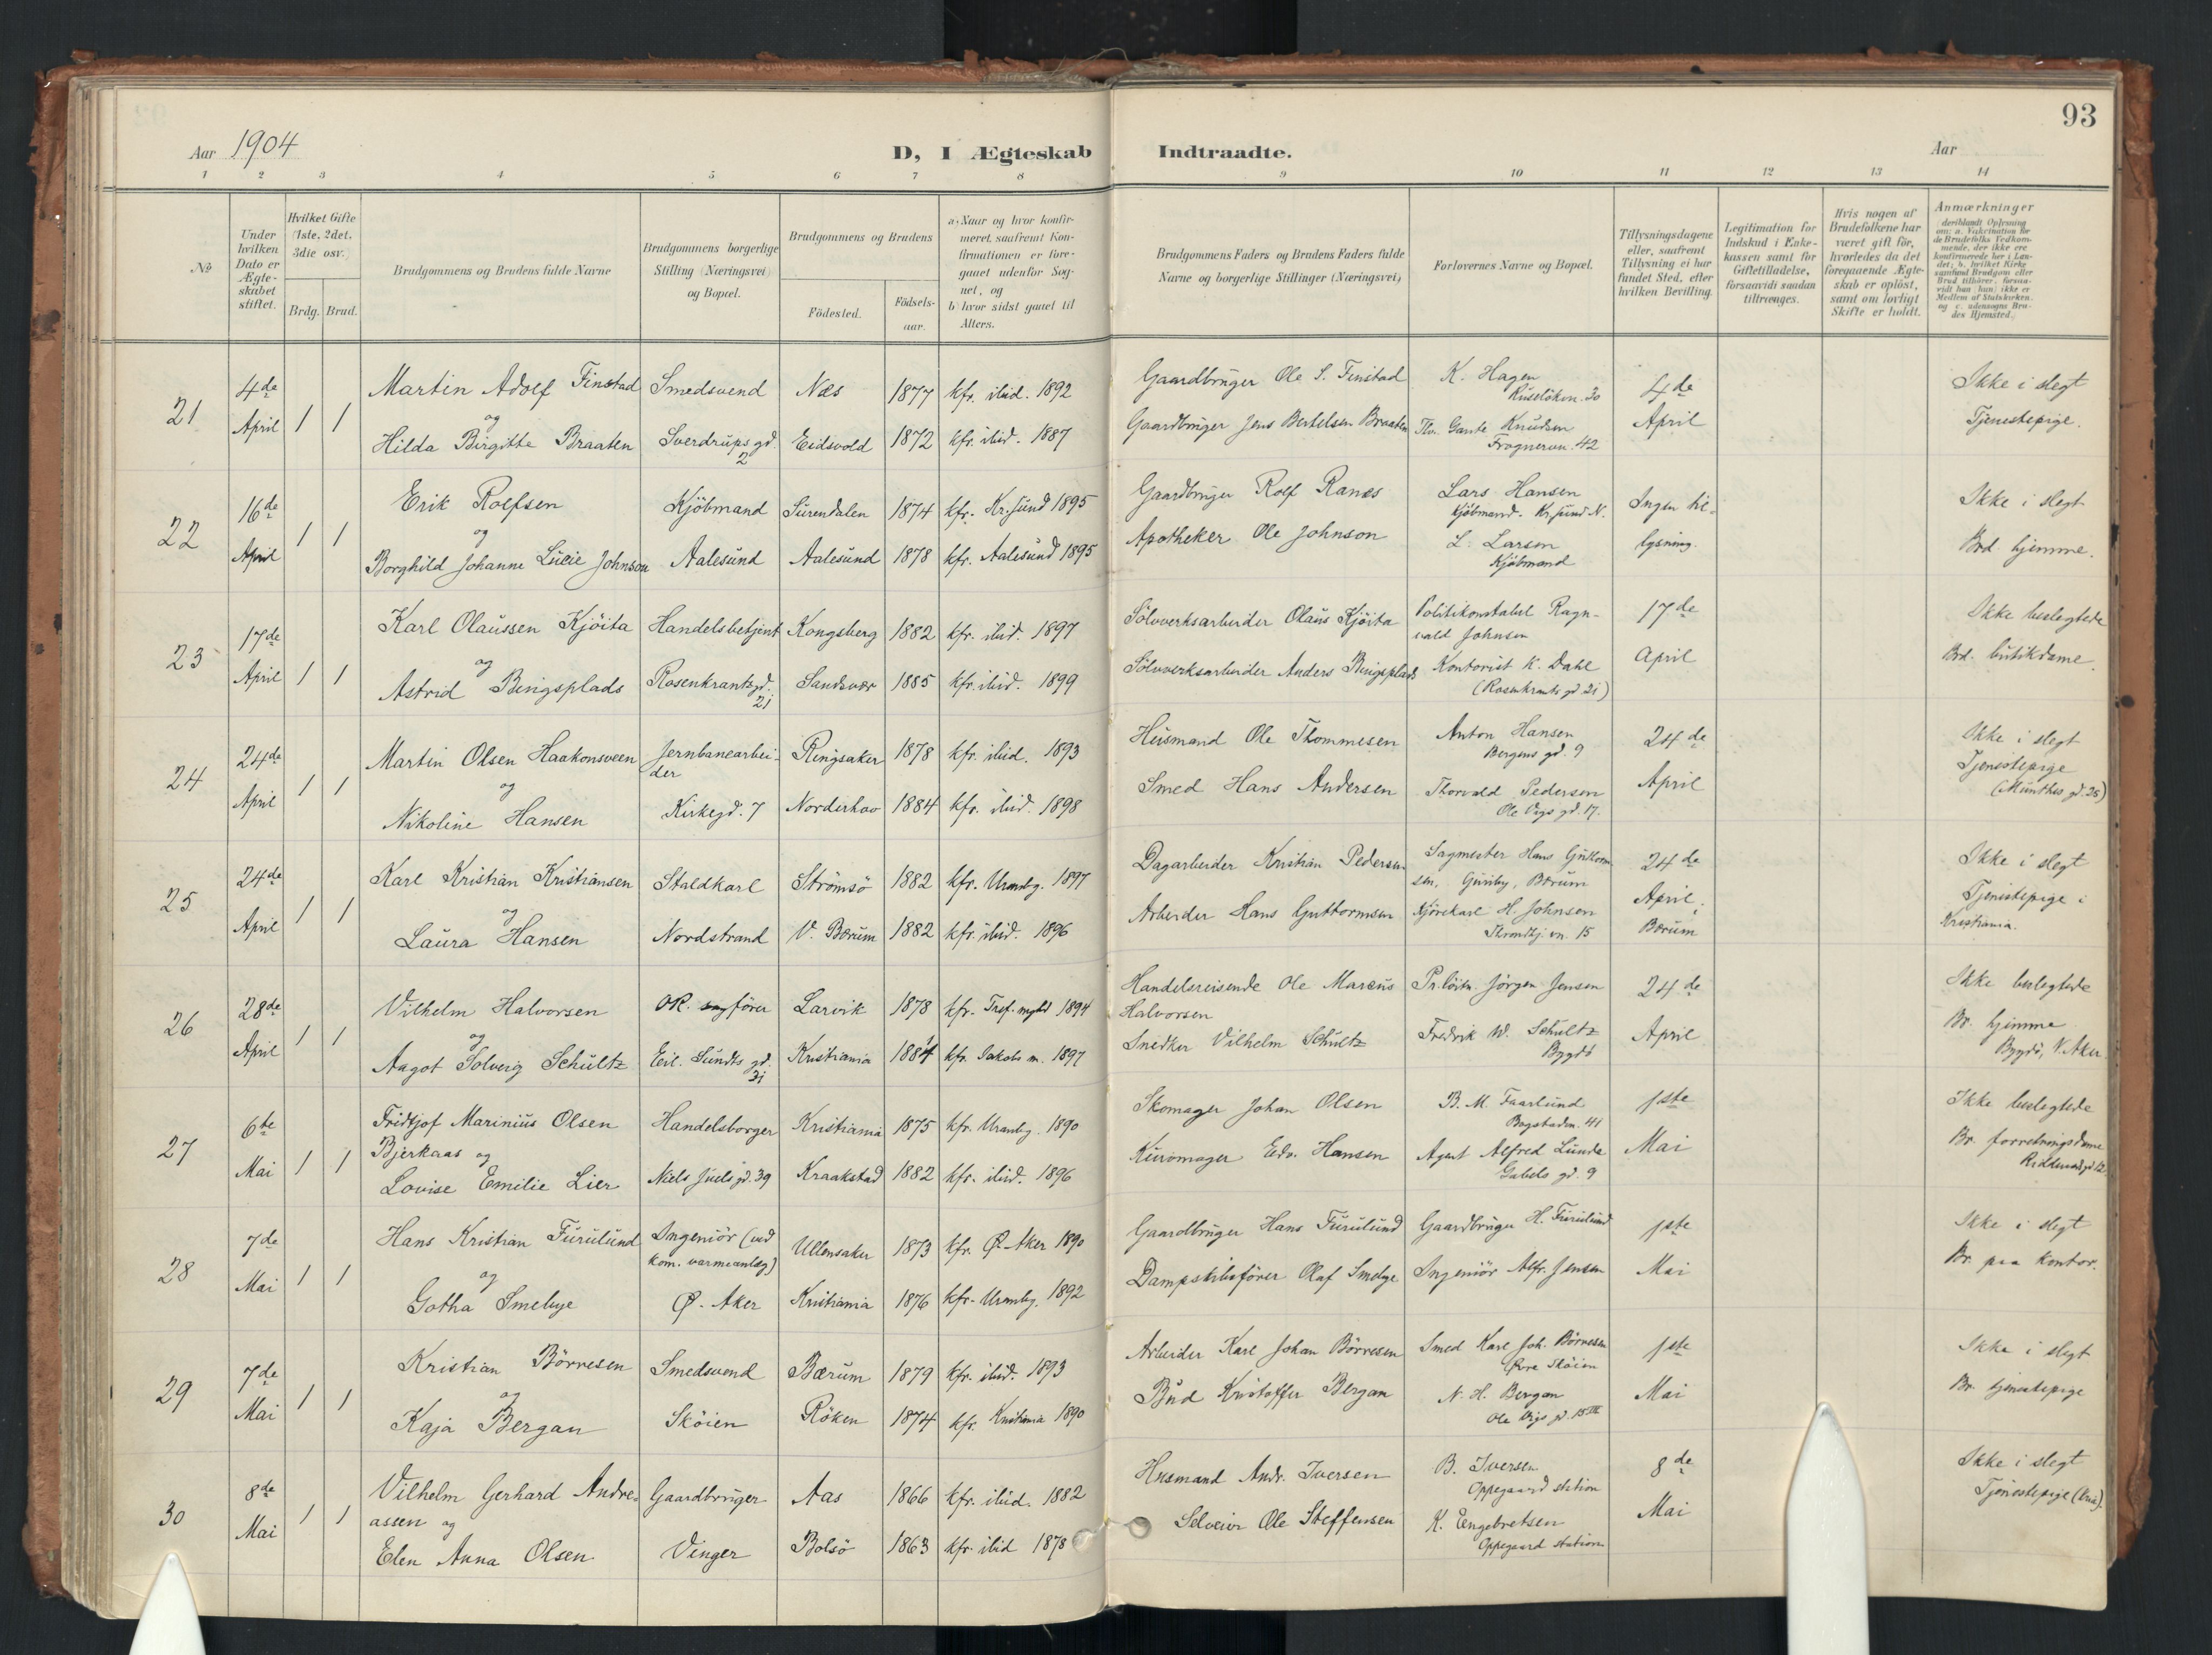 93
Aar 1904
D, I Ægteskab Indtraadte.
Aar
1 2 3 4 5 6 7 8 9 10 11 12 13 14
No
Under hvilken Dato er Ægteskabet stiftet.
Hvilket Gifte (1ste, 2det, 3die osv.)
Brdg. Brud.
Brudgommens og Brudens fulde Navne
Brudgommens borgerlige Stilling (Næringsvei) og Bopæl.
Brudgommens og Brudens
Födested.
Födsels-aar.
a) Naar og hvor konfir-
meret, saafremt Kon-
firmationen er fore-
gaaet udenfor Sog-
net, og
b) hvor sidst gaaet til
Alters.
Brudgommens Faders og Brudens Faders fulde
Navne og borgerlige Stillinger (Næringsvei)
Forlovernes Navne og Bopæl.
Tillysningsdagene
eller, saafremt
Tillysning ei har
fundet Sted, efter
hvilken Bevilling.
Legitimation for
Indskud i Enke-
kassen samt for
Giftetilladelse,
forsaavidt saadan
tiltrænges.
Hvis nogen af
Brudefolkene har
været gift för,
hvorledes da det
foregaaende Ægte-
skab er oplöst,
samt om lovligt
Skifte er holdt.
Anmærkninger
(deriblandt Oplysning
om: a. Vakcination for
de Brudefolks Vedkom-
mende, der ikke ere
konfirmerede her i Lan-
det; b. hvilket Kirke
samfund Brudgom eller
Brud tilhörer, forsaa-
vidt han (hun) ikke er
Medlem af Statskirken,
og c. udensogns Bru-
des Hjemsted.)
21 4de April 1 1
Martin Adolf Finstad Smedsvend Næs 1877 kfr. ibid. 1892 Gaardbruger Ole S. Finstad K. Hagen Ruselökvn. 20 4de April Ikke i slegt
og
Hilda Birgitte Braaten Sverdrups gd. 2 Eidsvold 1872 kfr. ibid. 1887 Gaardbruger Jens Bertelsen Braaten Knudsen Frognervn. 42 Tjenestepige.
22 16de April 1 1
Erik Rolfsen Kjöbmand Surendalen 1874 kfr. Kr.sund 1895 Gaardbruger Rolf Ranes Lars Hansen Kjöbmand. Kr.sund N. Ingen til- Ikke i slegt
og
Borghild Johanne Lucie Johnson Aalesund Aalesund 1878 kfr. Aalesund 1895 Apotheker Ole Johnson L. Larsen Kjöbmand lysning. Brd hjemme.
23 17de April 1 1
Karl Olaussen Kjöita Handelsbetjent Kongsberg 1882 kfr. ibid. 1897 Sölvverksarbeider Olaus Kjöita Politikonstabel Ragn-vald Johnsen 17de April Ikke beslegtede
og
Astrid Bingsplads Rosenkrantzgd. 21 Sandsvær 1885 kfr. ibid. 1899 Sölvverksarbeider Anders Bingsplads Kontorist K. Dahl (Rosenkrantz gd 21) Brd. butikdame.
24 24de April 1 1
Martin Olsen Haakonsveen Jernbanearbei-der Ringsaker 1878 kfr. ibid. 1893 Husmand Ole Thommesen Anton Hansen Bergens gd. 9 24de April Ikke i slegt
og
Nikoline Hansen Kirkegd. 7 Norderhov 1884 kfr. ibid. 1898 Smed Hans Andersen Thorvald Pedersen Ole Vigs gd. 17. Tjenestepige (Munthes gd. 28)
25 24de April 1 1
Karl Kristian Kristiansen Staldkarl Strömsö 1882 kfr. Uranbg. 1897 Dagarbeider Kristian Pedersen Sagmester Hans Guttorm-sen, Bærum 24de April; Bærum Ikke i slegt
og
Laura Hansen Nordstrand V. Bærum 1882 kfr. ibid. 1896 Arbeider Hans Guttormsen Kjörekarl H. Johnsen Throndhj. vn. 15 Tjenestepige i Kristiania.
26 28de April 1 1
Vilhelm Halvorsen Larvik 1878 kfr. 1894 Handelsreisende Ole Marcus Halvorsen Pr.löitn. Jörgen Jensen 24de April Ikke beslegtede
og
Aagot Solveig Schultz Eil. Sundts gd. 31 Kristiania 1884 kfr. Jakobs m. 1897 Snedker Vilhelm Schultz Fredrik W. Schultz Bygdö Br. hjemme Bygdö, V. Aker
27 6te Mai 1 1
Fridtjof Marinius Olsen Bjerkaas Handelsborger Kristiania 1875 kfr. Uranbg. 1890 Skomager Johan Olsen B. M. Faarlund Bogstadvn. 41 1ste Mai Ikke beslegtede
og
Lovise Emilie Lier Niels Juels gd. 39 Kraakstad 1882 kfr. ibid. 1896 Kurvmager Edv. Hansen Agent Alfred Lunde Gabels gd. 9 Br. forretningsdame
28 7de Mai 1 1
Hans Kristian Furulund Ingeniör (ved kom. varmeanlæg) Ullensaker 1873 kfr. Ø. Aker 1890 Gaardbruger Hans Furulund Gaardbruger H. Furulund 1ste Mai Ikke i slegt
og
Gotha Smebye Ø. Aker Kristiania 1876 kfr. Uranbg. 1892 Dampskibsförer Olaf Smebye Ingeniör Alfr. Jensen Br. paa kontor.
29 7de Mai 1 1
Kristian Börresen Smedsvend Bærum 1879 kfr. ibid. 1893 Arbeider Karl Johan Börresen Smed Karl Joh. Börresen Øvre Sköien 1ste Mai Ikke i slegt
og
Kaja Bergan Sköien Röken 1874 kfr. Kristiania 1890 Bud Kristoffer Bergan N. H. Bergan Ole Vigs gd. 15 III Br. tjenestepige
30 8de Mai 1 1
Vilhelm Gerhard Andre-assen Gaardbruger Aas 1866 kfr. ibid. 1882 Husmand Andr. Iversen B. Iversen Oppegaard station 8de Mai Ikke i slegt
og
Elen Anna Olsen. Vinger Bolsö 1863 kfr. ibid 1878 Selveier Ole Steffensen K. Engebretsen Oppegaard station Tjenestepige (Kria).